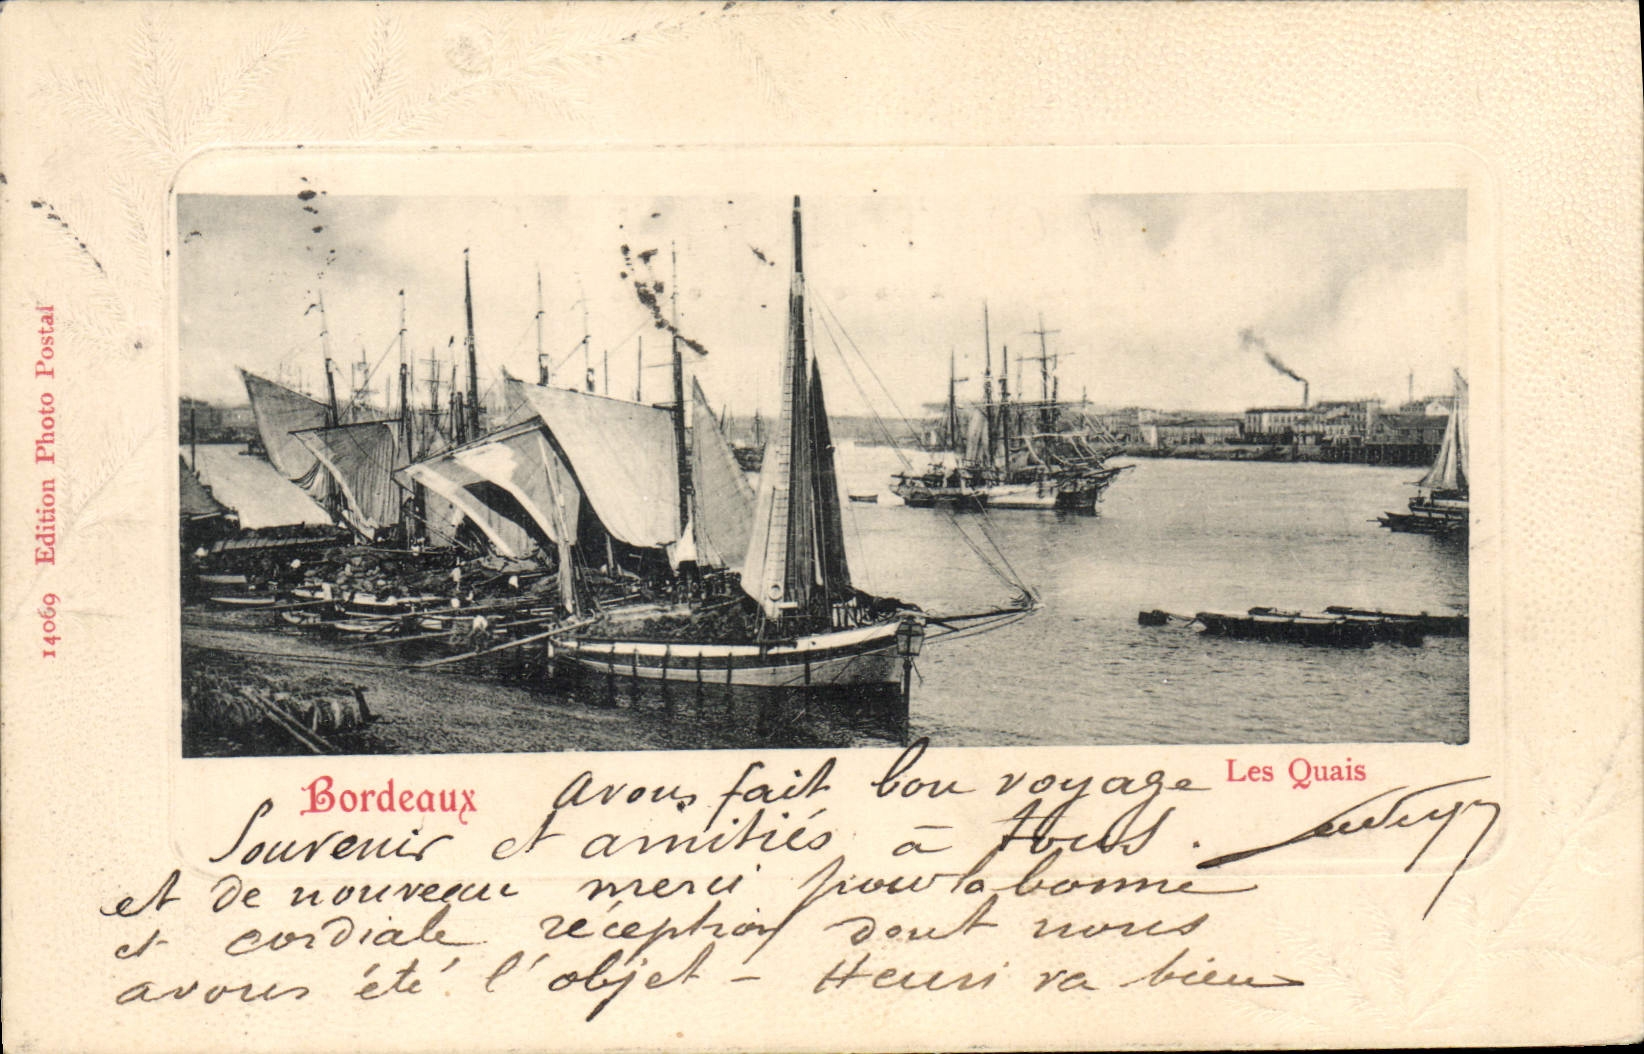 14069 Edition Photo Postal
Bordeaux
Les Quais
avons fait bon voyage
Souvenir et amitiés à tous.
et de nouveau merci pour la bonne
et cordiale réception dont nous
avons été l'objet - Henri va bien